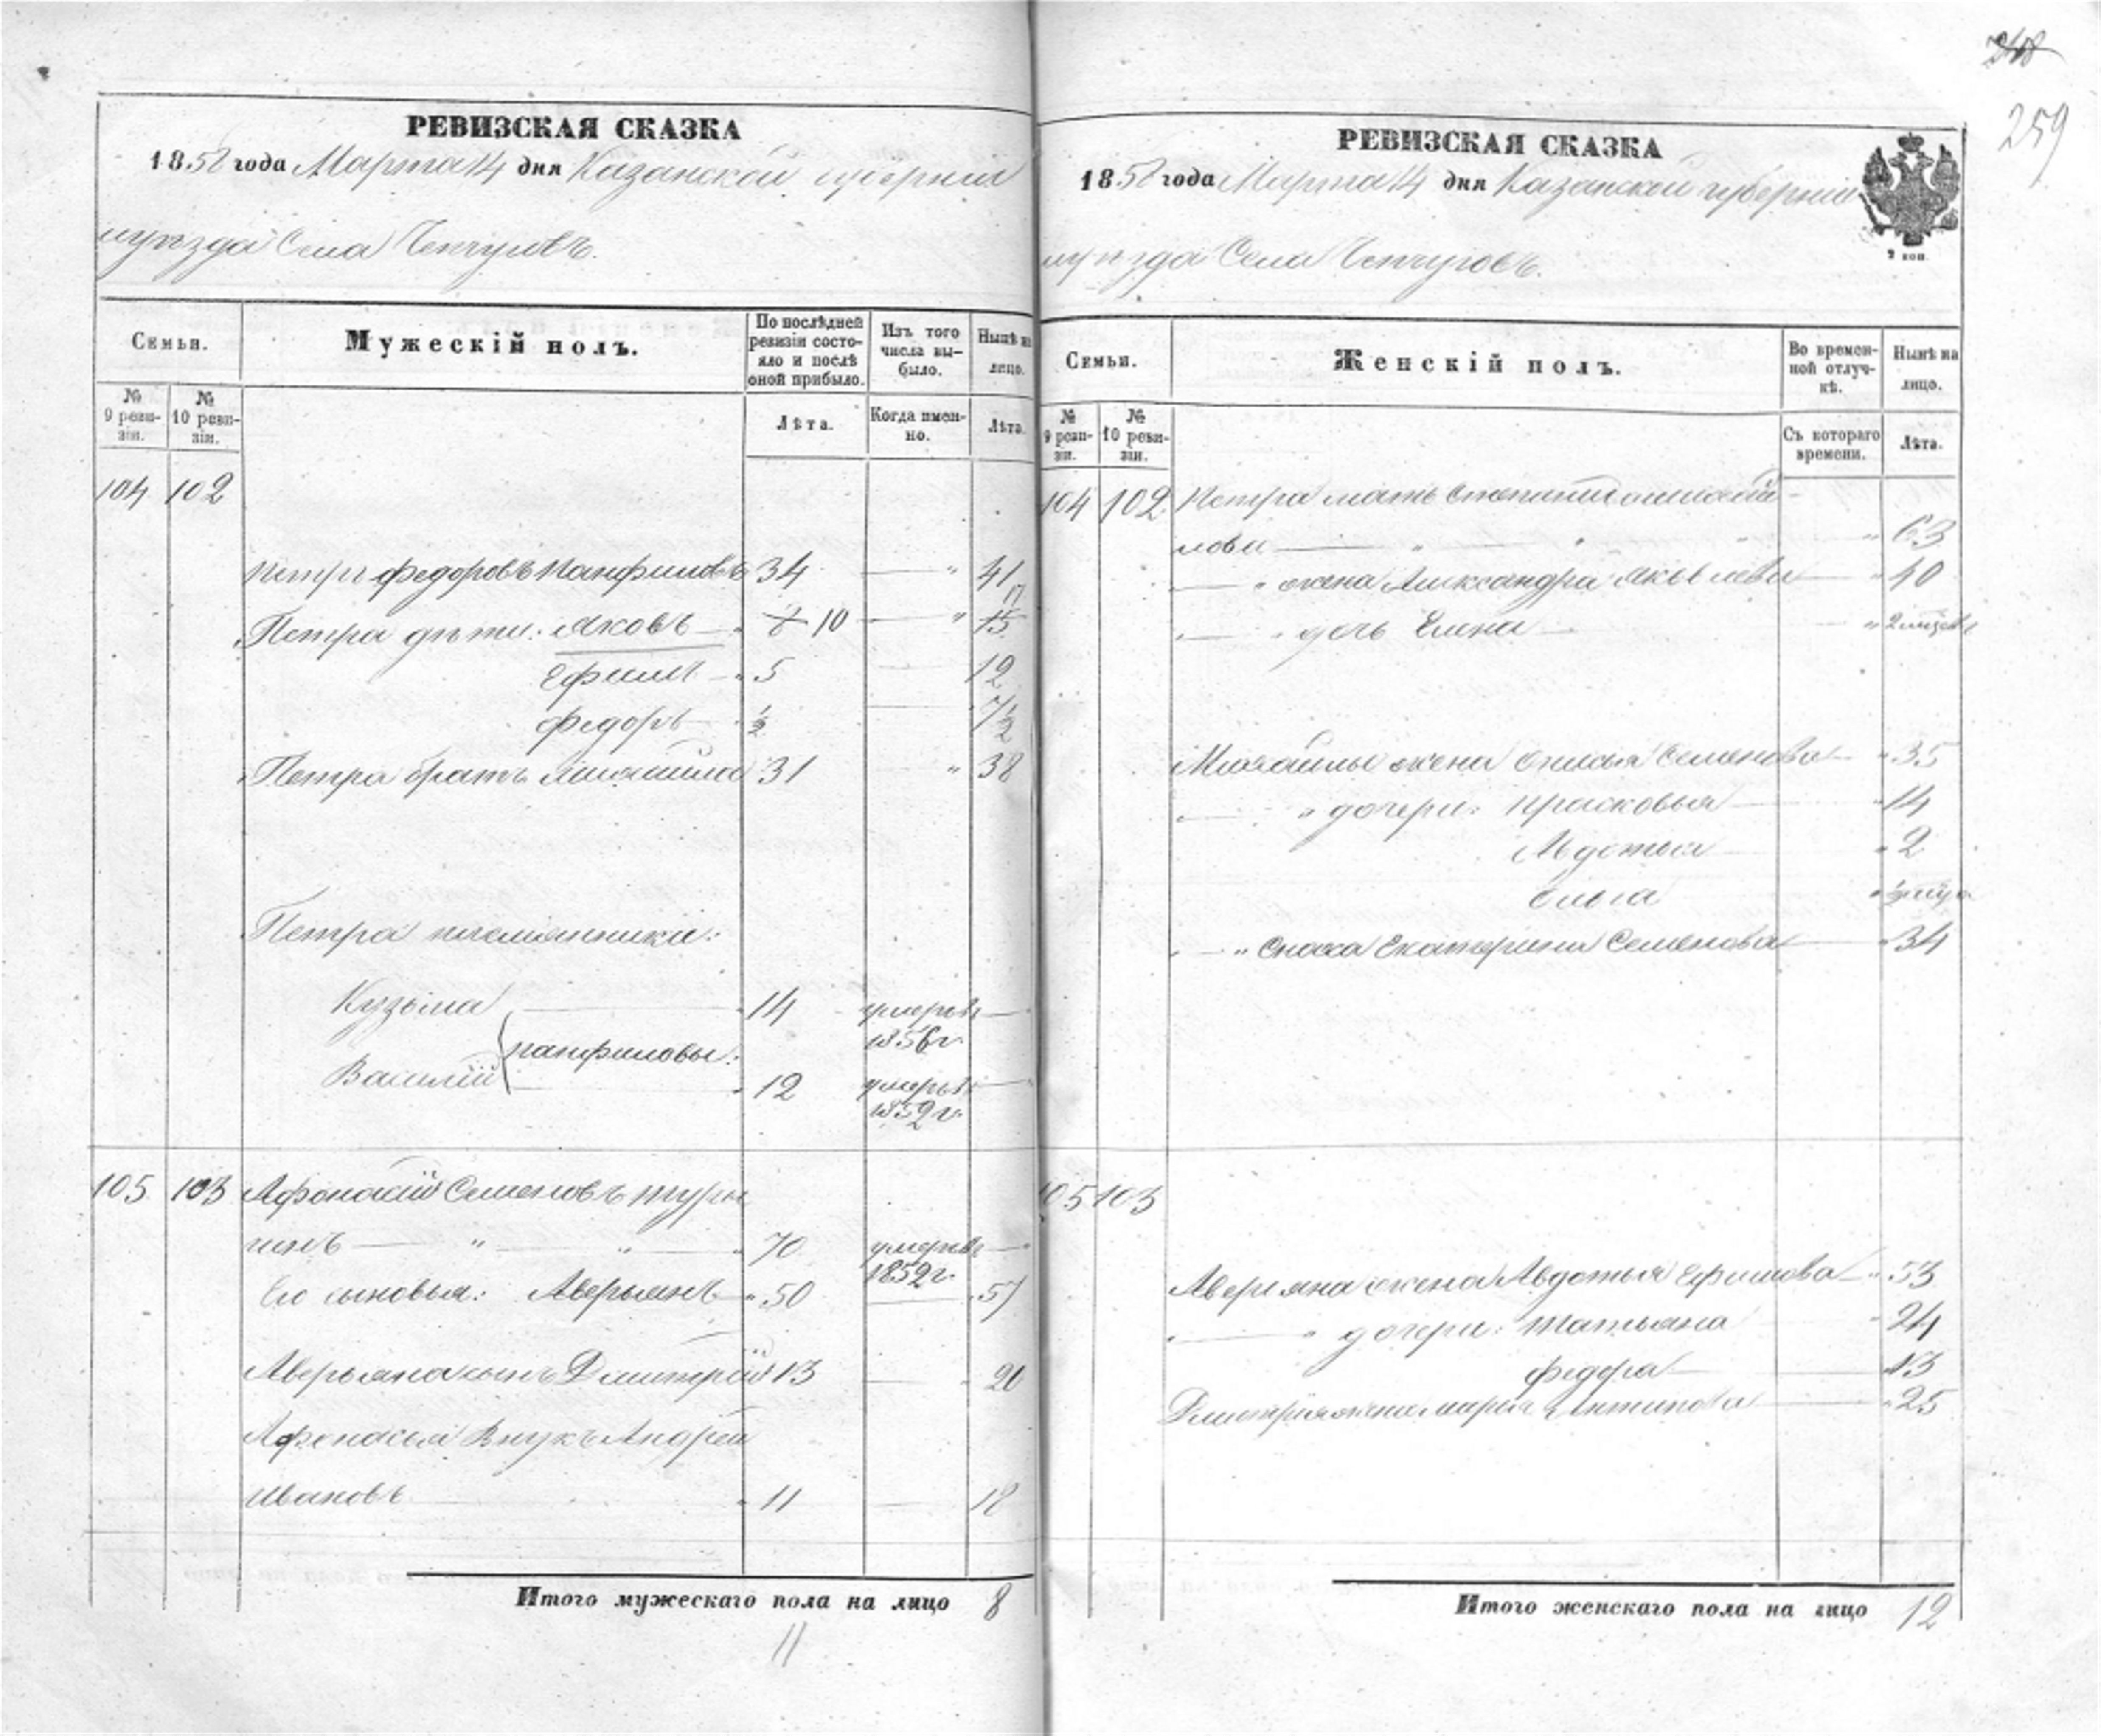 259
РЕВИЗСКАЯ СКАЗКА
1858 года Марта 14 дня Казанской губернiи
и уѣзда Села Чепчуговъ.
Семьи.
Мужескiй полъ.
По послѣдней ревизiи состояло и послѣ оной прибыло.
Изъ того числа выбыло.
Нынѣ на лицо.
№ 9 ревизiи.
№ 10 ревизiи.
Лѣта.
Когда именно.
Лѣта.
104 102
Петръ Федоровъ Панфиловъ 34 — " 41
Петра дѣти: Яковъ — " 8 10 — " 15 17
Ефимъ — " 5 — 12
Федоръ — " ½ — 7½
Петра братъ Михаила 31 " 38
Петра племянники:
Кузьма — 14 умеръ въ —
1856 г.
Панфиловы:
Василiй — " 12 умеръ въ —
1852 г.
105 103 Афонасiй Семеновъ Туры
гинъ — " — " — " 70 умеръ въ — "
1852 г.
Его сыновья: Аверьянъ — " 50 — " 57
Аверьяна сынъ Дмитрiй 13 — " 20
Афонасья Внукъ Андрей
Ивановъ — " 11 — 18
Итого мужескаго пола на лицо 8
11
РЕВИЗСКАЯ СКАЗКА
1858 года Марта 14 дня Казанской губернiи
и уѣзда Села Чепчуговъ.
2 коп.
Семьи.
Женскiй полъ.
Во временной отлучкѣ.
Нынѣ на лицо.
№ 9 ревизiи.
№ 10 ревизiи.
Съ котораго времени.
Лѣта.
104 102 Петра мать
лова — " " " " 63
— " жена Александра Яковлева — " 40
— " дочь Елена — "
Михайлы жена Семенова — " 35
— " дочери: Прасковья — " 14
Авдотья — " 2
Ольга "
— " Сноха Екатерина Семенова — " 34
105 103
Аверьяна жена Авдотья Ефимова — " 53
— " дочери: Татьяна " 24
Федора — 13
Дмитрiя жена Марья Антипова — " 25
Итого женскаго пола на лицо 12